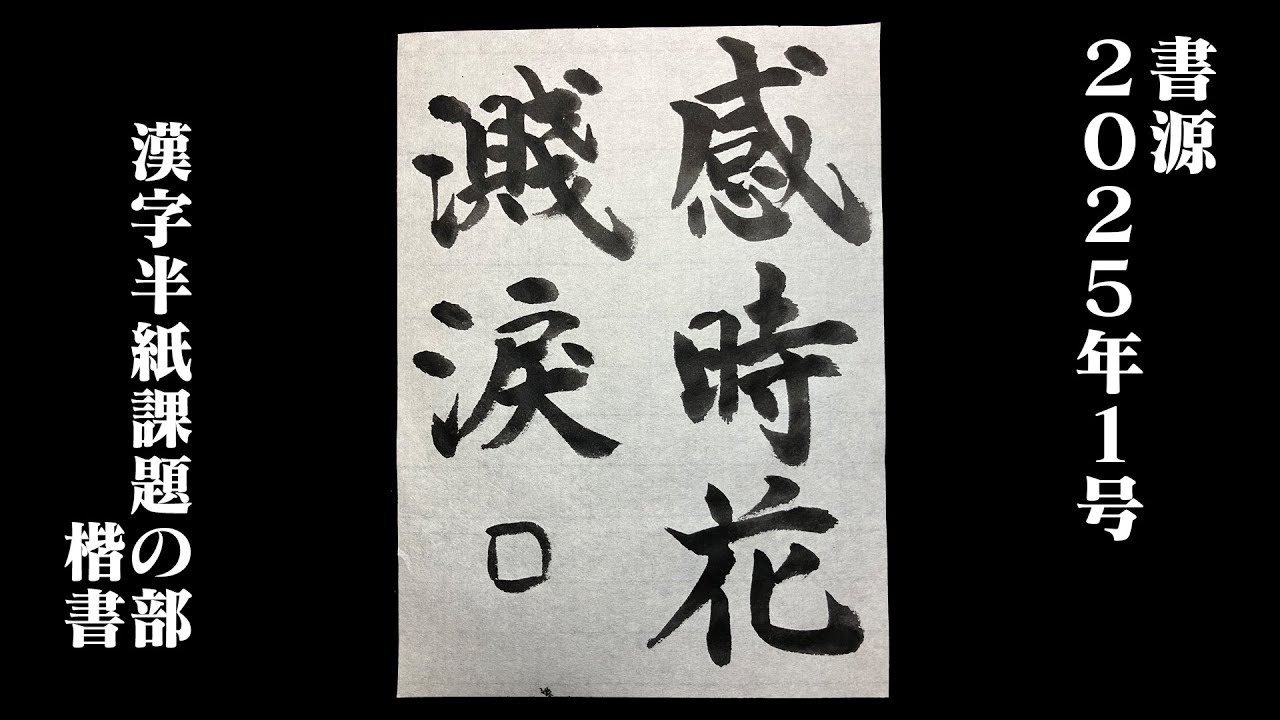 書源
2025年1号
感時花
濺淚
漢字半紙課題の部
楷書